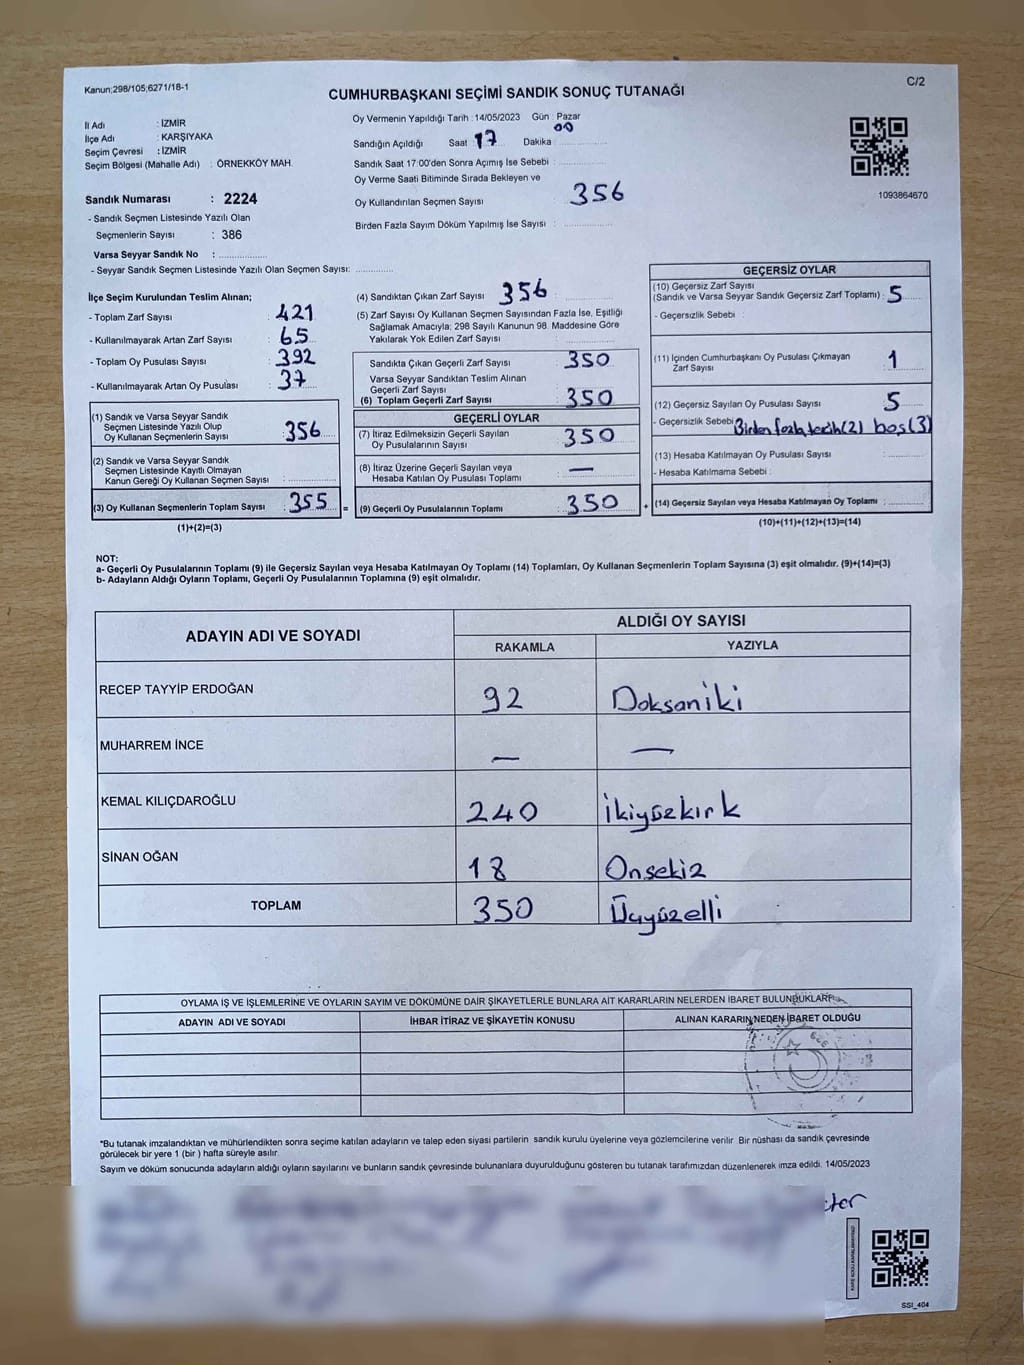 Kanun;298/105;6271/18-1
C/2
CUMHURBAŞKANI SEÇİMİ SANDIK SONUÇ TUTANAĞI
İl Adı : İZMİR
İlçe Adı : KARŞIYAKA
Seçim Çevresi : İZMİR
Seçim Bölgesi (Mahalle Adı) : ÖRNEKKÖY MAH.
Sandık Numarası : 2224
- Sandık Seçmen Listesinde Yazılı Olan
Seçmenlerin Sayısı : 386
Varsa Seyyar Sandık No : ....................
- Seyyar Sandık Seçmen Listesinde Yazılı Olan Seçmen Sayısı: ...............
Oy Vermenin Yapıldığı Tarih : 14/05/2023 Gün : Pazar
Sandığın Açıldığı Saat 17 Dakika 00
Sandık Saat 17:00'den Sonra Açımış İse Sebebi :
Oy Verme Saati Bitiminde Sırada Bekleyen ve
Oy Kullandırılan Seçmen Sayısı : 356
Birden Fazla Sayım Döküm Yapılmış İse Sayısı :
1093864670
İlçe Seçim Kurulundan Teslim Alınan;
- Toplam Zarf Sayısı : 421
- Kullanılmayarak Artan Zarf Sayısı : 65
- Toplam Oy Pusulası Sayısı : 392
- Kullanılmayarak Artan Oy Pusulası : 37
(1) Sandık ve Varsa Seyyar Sandık
Seçmen Listesinde Yazılı Olup
Oy Kullanan Seçmenlerin Sayısı : 356
(2) Sandık ve Varsa Seyyar Sandık
Seçmen Listesinde Kayıtlı Olmayan
Kanun Gereği Oy Kullanan Seçmen Sayısı :
(3) Oy Kullanan Seçmenlerin Toplam Sayısı : 355 =
(1)+(2)=(3)
(4) Sandıktan Çıkan Zarf Sayısı : 356
(5) Zarf Sayısı Oy Kullanan Seçmen Sayısından Fazla İse, Eşitliği
Sağlamak Amacıyla; 298 Sayılı Kanunun 98. Maddesine Göre
Yakılarak Yok Edilen Zarf Sayısı :
Sandıkta Çıkan Geçerli Zarf Sayısı : 350
Varsa Seyyar Sandıktan Teslim Alınan
Geçerli Zarf Sayısı :
(6) Toplam Geçerli Zarf Sayısı : 350
GEÇERLİ OYLAR
(7) İtiraz Edilmeksizin Geçerli Sayılan
Oy Pusulalarının Sayısı : 350
(8) İtiraz Üzerine Geçerli Sayılan veya
Hesaba Katılan Oy Pusulası Toplamı : —
(9) Geçerli Oy Pusulalarının Toplamı : 350 +
GEÇERSİZ OYLAR
(10) Geçersiz Zarf Sayısı
(Sandık ve Varsa Seyyar Sandık Geçersiz Zarf Toplamı) : 5
- Geçersizlik Sebebi :
(11) İçinden Cumhurbaşkanı Oy Pusulası Çıkmayan
Zarf Sayısı : 1
(12) Geçersiz Sayılan Oy Pusulası Sayısı : 5
- Geçersizlik Sebebi : Birden fazla tercih(2) boş(3)
(13) Hesaba Katılmayan Oy Pusulası Sayısı :
- Hesaba Katılmama Sebebi :
(14) Geçersiz Sayılan veya Hesaba Katılmayan Oy Toplamı :
(10)+(11)+(12)+(13)=(14)
NOT:
a- Geçerli Oy Pusulalarının Toplamı (9) ile Geçersiz Sayılan veya Hesaba Katılmayan Oy Toplamı (14) Toplamları, Oy Kullanan Seçmenlerin Toplam Sayısına (3) eşit olmalıdır. (9)+(14)=(3)
b- Adayların Aldığı Oyların Toplamı, Geçerli Oy Pusulalarının Toplamına (9) eşit olmalıdır.
ADAYIN ADI VE SOYADI
ALDIĞI OY SAYISI
RAKAMLA YAZIYLA
RECEP TAYYİP ERDOĞAN 92 Doksaniki
MUHARREM İNCE — —
KEMAL KILIÇDAROĞLU 240 İkiyüzkırk
SİNAN OĞAN 18 Onsekiz
TOPLAM 350 Üçyüzelli
OYLAMA İŞ VE İŞLEMLERİNE VE OYLARIN SAYIM VE DÖKÜMÜNE DAİR ŞİKAYETLERLE BUNLARA AİT KARARLARIN NELERDEN İBARET BULUNDUKLARI
ADAYIN ADI VE SOYADI İHBAR İTİRAZ VE ŞİKAYETİN KONUSU ALINAN KARARIN NEDEN İBARET OLDUĞU
*Bu tutanak imzalandıktan ve mühürlendikten sonra seçime katılan adayların ve talep eden siyasi partilerin sandık kurulu üyelerine veya gözlemcilerine verilir. Bir nüshası da sandık çevresinde
görülecek bir yere 1 (bir ) hafta süreyle asılır.
Sayım ve döküm sonucunda adayların aldığı oyların sayılarını ve bunların sandık çevresinde bulunanlara duyurulduğunu gösteren bu tutanak tarafımızdan düzenlenerek imza edildi. 14/05/2023
SSI_404